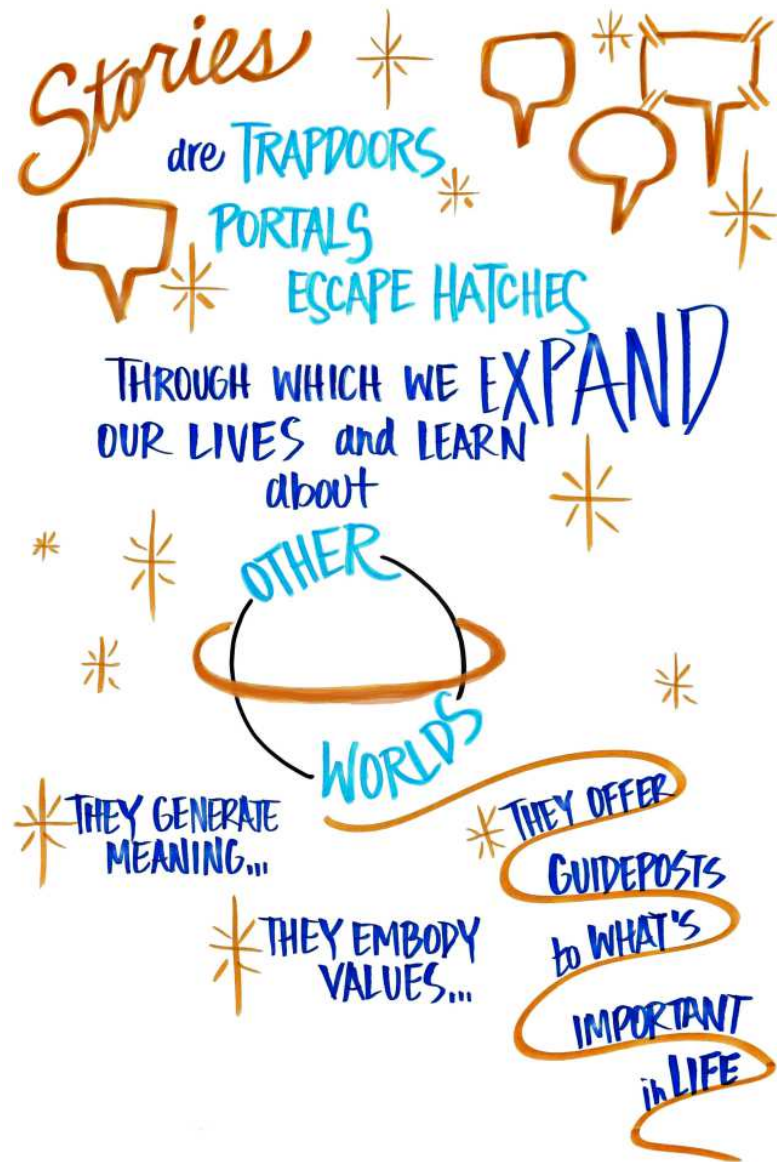 Stories
are TRAPDOORS
PORTALS
ESCAPE HATCHES
THROUGH WHICH WE EXPAND
OUR LIVES and LEARN
about
OTHER
WORLDS
THEY GENERATE
MEANING...
THEY EMBODY
VALUES...
THEY OFFER
GUIDEPOSTS
to WHAT'S
IMPORTANT
in LIFE